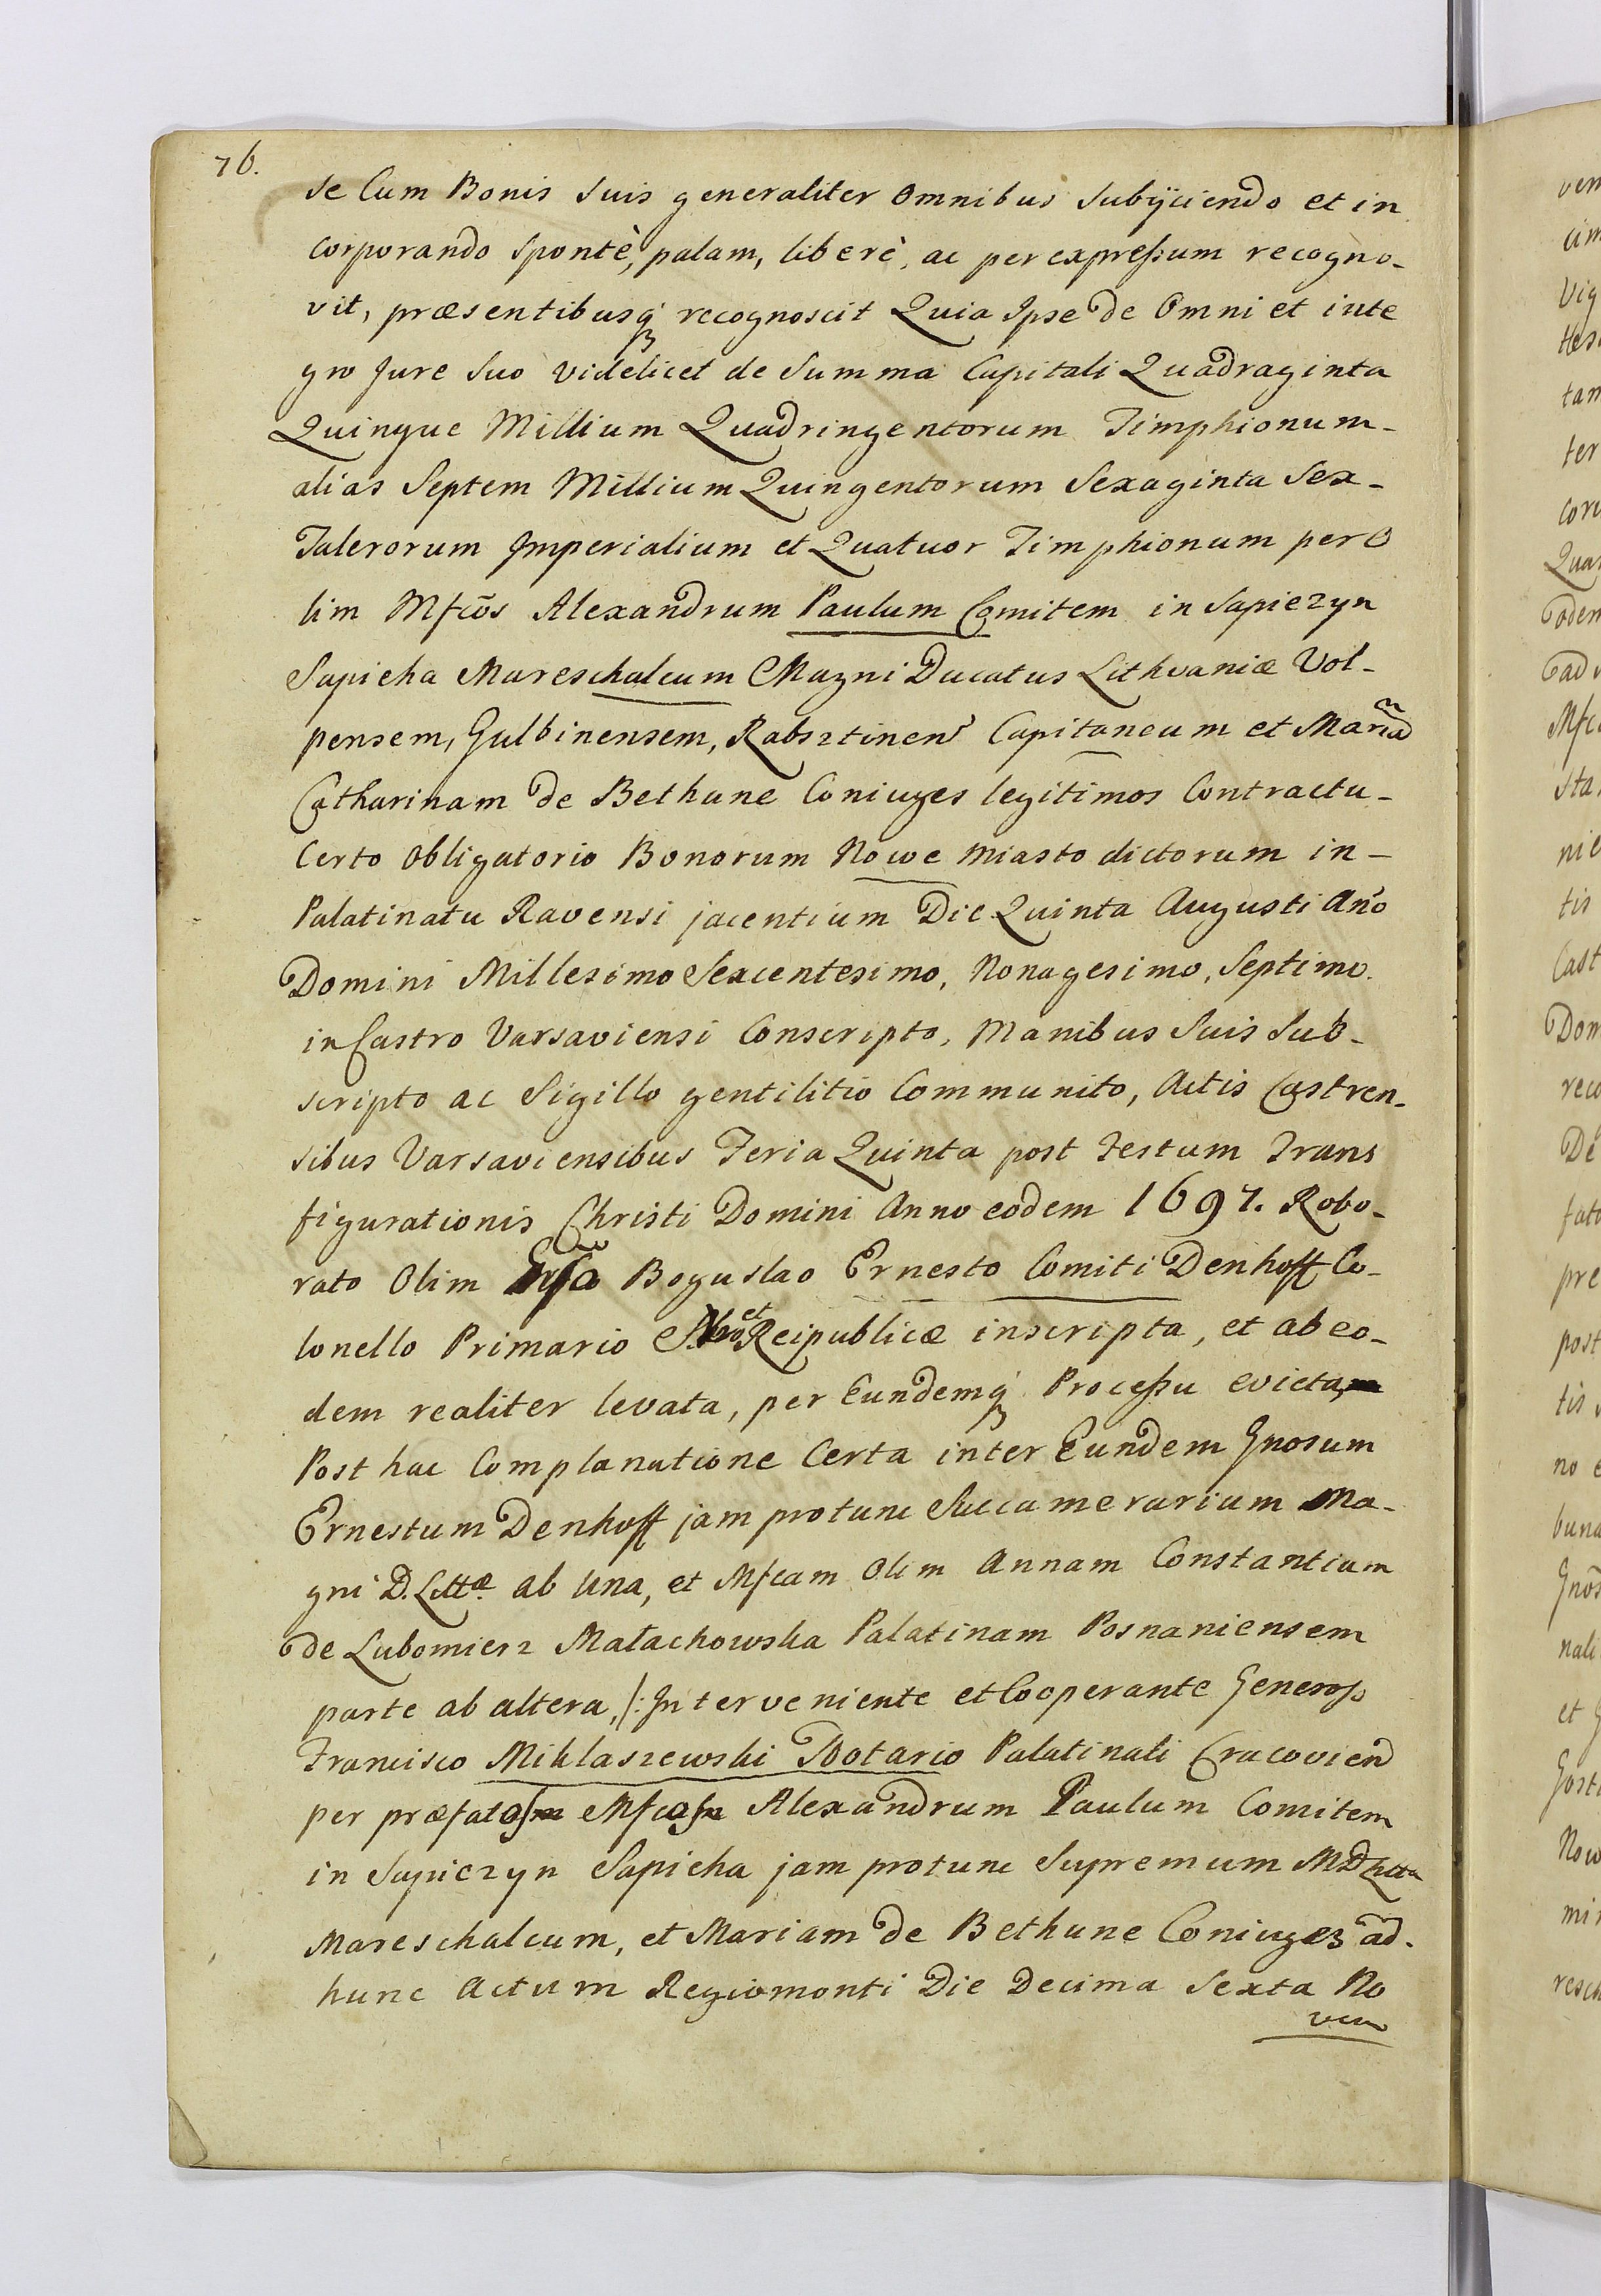 76.
se Cum Bonis Suis generaliter Omnibus Subÿciendo et in
corporando Spontè, palam, liberè, ac per expressum recogno-
vit, præsentibusq recognoscit Quia Ipse de Omni et inte
gro Jure Suo videlicet de Summa Capitali Quadraginta
Quinque Millium Quadringentorum Timphionum-
alias Septem Millium Quingentorum Sexaginta Sex-
Talerorum Imperialium et Quatuor Timphionum per O
lim Mfcōs Alexandrum Paulum Comitem in Sapiezyn
Sapieha Mareschalcum Magni Ducatus Lithvaniæ Vol-
pensem, Gulbinensem, Rabsztinen Capitaneum et Mariā
Catharinam de Bethune Coniuges legitimos Contractu-
Certo Obligatorio Bonorum Nowe Miasto dictorum in-
Palatinatu Ravensi jacentium Die Quinta Augusti Año
Domini Millesimo Sexcentesimo, Nonagesimo, Septimo.
in Castro Varsaviensi Conscripto, Manibus Suis Sub-
scripto ac Sigillo gentilitio Communito, Actis Castren-
sibus Varsaviensibus Feria Quinta post Festum Trans
figurationis Christi Domini Anno eodem 1697. Robo-
rato Olim Boguslao Ernesto Comiti Denhoff Co-
lonello Primario et Reipublicæ inscripta, et ab eo-
dem realiter levata, per Eundemq Processu evicta,
Post hac Complanatione Certa inter Eundem Gnosum
Ernestum Denhoff jam protunc Succamerarium Ma-
gni D. Littæ ab Una, et Mfcam Olim Annam Constantiam
de Lubomierz Małachowska Palatinam Posnaniensem
parte ab altera, /: Interveniente et Cooperante Geneross
Francisco Miklaszewski Notario Palatinali Cracovien
per præfatos Mfcos Alexandrum Paulum Comitem
in Sapiezyn Sapieha jam protunc Supremum MD Litta
Mareschalcum, et Mariam de Bethune Coniuges ad-
hunc Actum Regiomonti Die Decima Sexta No
vem